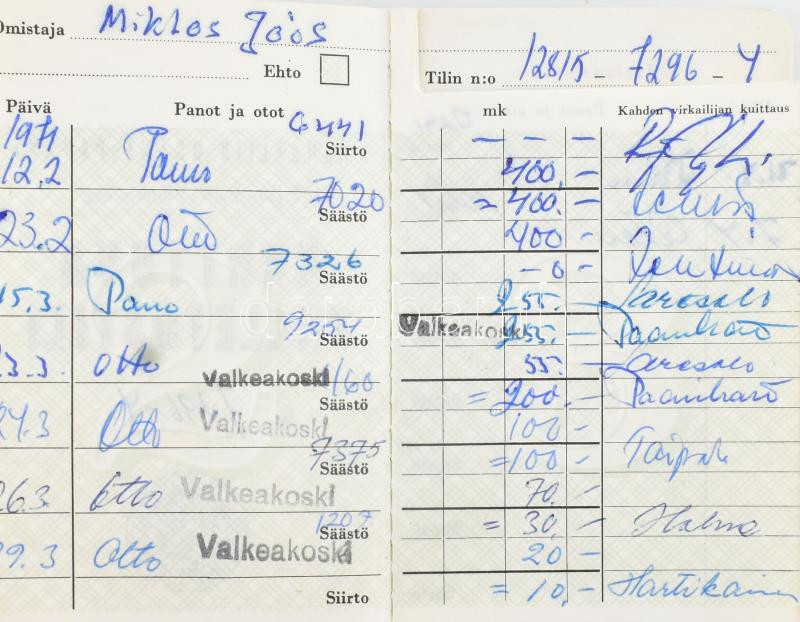 Omistaja Miklos Joós
Ehto
Tilin n:o 12815 - 7296 - 4
Päivä Panot ja otot mk Kahden virkailijan kuittaus
1971 6441 Siirto - - -
12.2 Pano 400.-
7020 Säästö = 400.-
23.2 Otto 400 -
7326 Säästö - 0 -
15.3. Pano 255.-
9254 Säästö Valkeakoski 255.- Paanihalto
23.3. Otto 55.-
Valkeakoski 1160 Säästö = 200.-
24.3 Otto Valkeakoski 100 -
7375 Säästö = 100 -
26.3. Otto Valkeakoski 70.-
1207 Säästö = 30.- Halme
29.3 Otto Valkeakoski 20 -
Siirto = 10.- Hartikainen